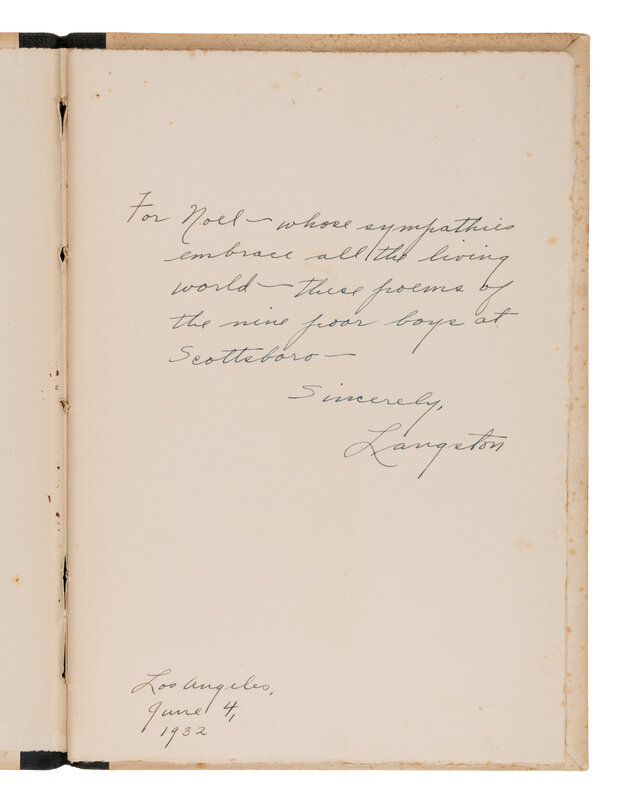 For Noel— whose sympathies
embrace all the living
world— these poems of
the nine poor boys at
Scottsboro—
Sincerely,
Langston
Los Angeles,
June 4,
1932